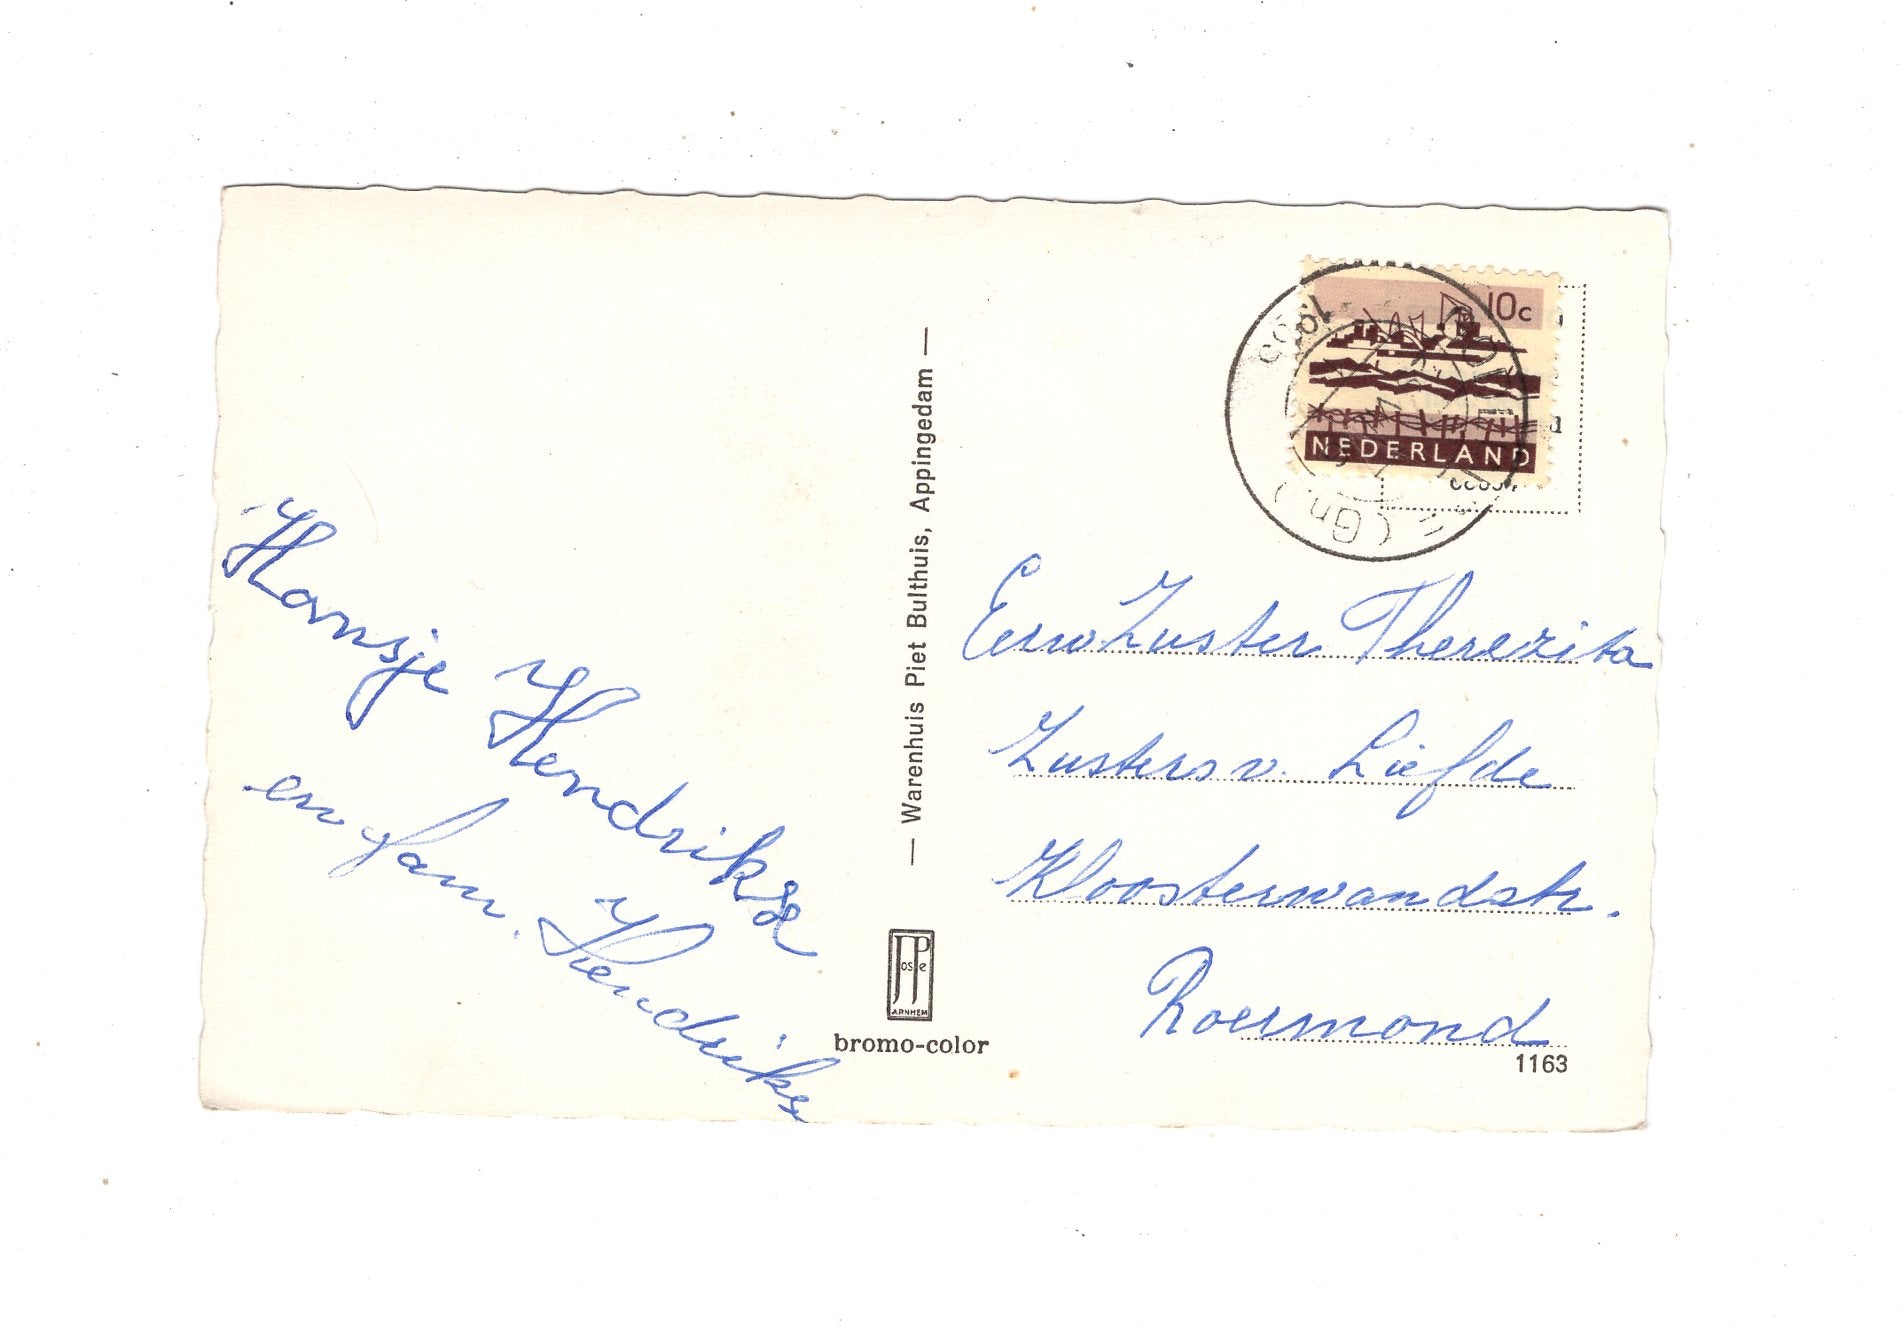 Hansje Hendrikse
en fam. Hendrikse
— Warenhuis Piet Bulthuis, Appingedam —
JosPe
ARNHEM
bromo-color
10c
NEDERLAND
(Gn.)
Eerw Zuster Therezita
Zusters v. Liefde
Kloosterwandstr.
Roermond
1163